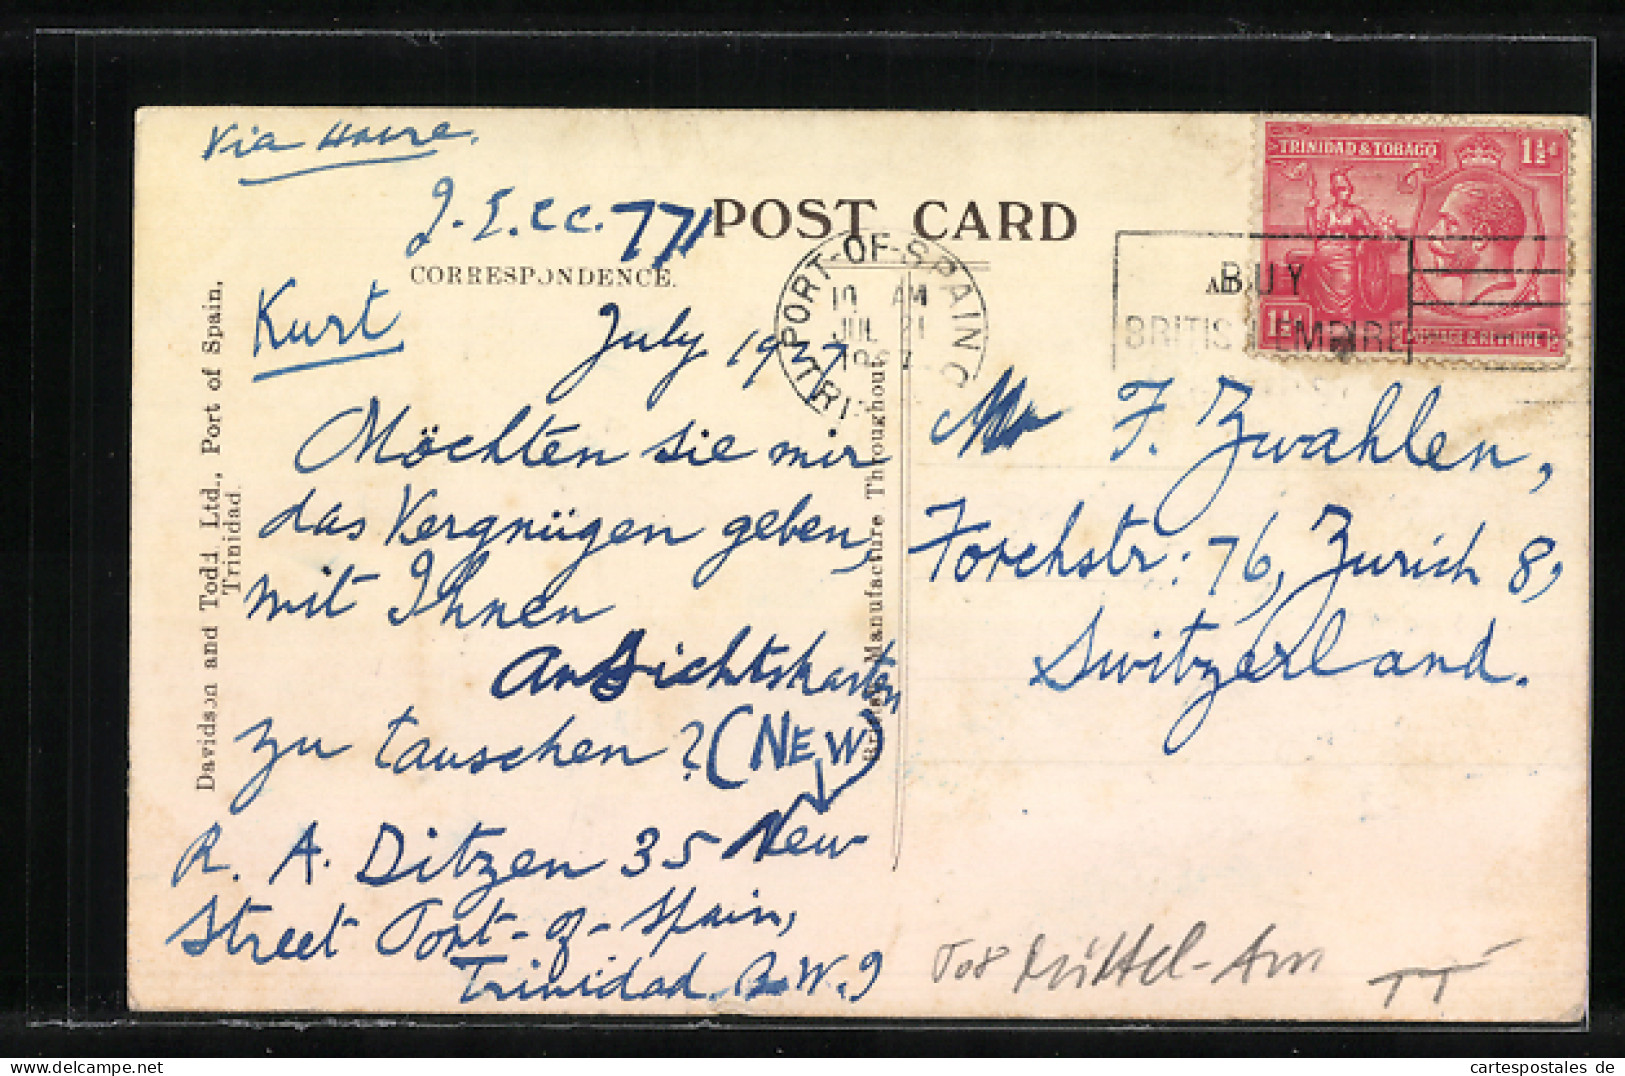 Via Havre.
J.S.CC. 771
POST CARD
CORRESPONDENCE.
TRINIDAD & TOBAGO 1½d
1½d POSTAGE & REVENUE
PORT-OF-SPAIN
10 AM
JUL 21
1937
TRI
BUY
BRITISH EMPIRE
Kurt July 1937
Möchten sie mir
das Vergnügen geben,
mit Ihnen
Ansichtskarten
zu tauschen? (NEW)
R. A. Ditzen 35 New
Street Port-of-Spain,
Trinidad. B.W.I
Mr F. Zwahlen,
Forchstr: 76, Zurich 8,
Switzerland.
Davidson and Todd Ltd., Port of Spain,
Trinidad.
British Manufacture Throughout
Mittel-Am
TT
www.cartespostales.de